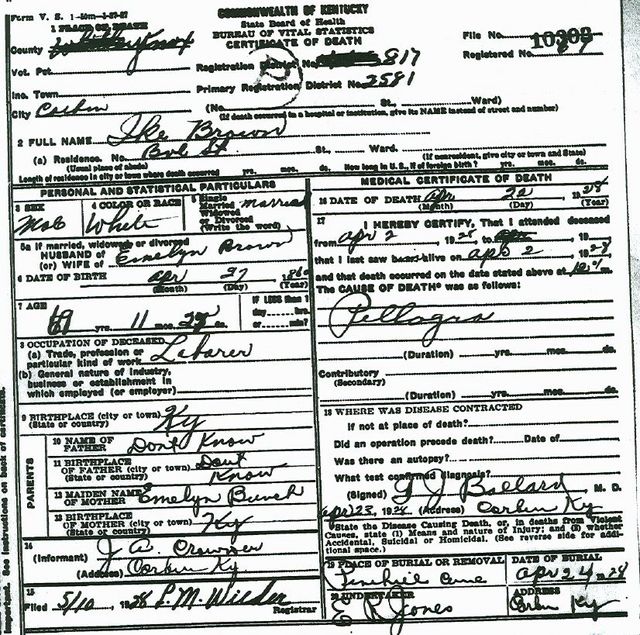 Form V. S. 1
COMMONWEALTH OF KENTUCKY
State Board of Health
BUREAU OF VITAL STATISTICS
CERTIFICATE OF DEATH
File No. 10308
Registered No.
1 PLACE OF DEATH
County Knox
Vot. Pct.
Registration District No. 817
Inc. Town
Primary Registration District No. 2581
City Corbin (No. St., Ward)
(If death occurred in a hospital or institution, give its NAME instead of street and number)
2 FULL NAME Ike Brown
(a) Residence. No. St., Ward.
(Usual place of abode) (If nonresident, give city or town and State)
Length of residence in city or town where death occurred yrs. mos. ds. How long in U. S., if of foreign birth? yrs. mos. ds.
PERSONAL AND STATISTICAL PARTICULARS
3 SEX
4 COLOR OR RACE
White
5 Single
Married
Widowed
or Divorced
(Write the word)
Married
5a If married, widowed or divorced
HUSBAND OF
(or) WIFE of
Emelyn Brown
6 DATE OF BIRTH apr 27
(Month) (Day) (Year)
7 AGE
yrs. 11 mos. ds.
IF LESS than 1
day hrs.
or min?
8 OCCUPATION OF DECEASED
(a) Trade, profession or
particular kind of work Laborer
(b) General nature of industry,
business or establishment in
which employed (or employer)
9 BIRTHPLACE (city or town)
(State or country) Ky
PARENTS
10 NAME OF
FATHER Dont Know
11 BIRTHPLACE
OF FATHER (city or town)
(State or country)
Dont Know
12 MAIDEN NAME
OF MOTHER Emelyn Bunch
13 BIRTHPLACE
OF MOTHER (city or town)
(State or country) Ky
14
(Informant) J A.
(Address) Corbin Ky
15
Filed 5/10, 1928 Registrar
MEDICAL CERTIFICATE OF DEATH
16 DATE OF DEATH apr 22 1928
(Month) (Day) (Year)
17
I HEREBY CERTIFY, That I attended deceased
from apr 2, 1928, to, 19
that I last saw alive on apr 2, 1928
and that death occurred on the date stated above at
The CAUSE OF DEATH* was as follows:
Pellagra
(Duration) yrs. mos. ds.
Contributory
(Secondary)
(Duration) yrs. mos. ds.
18 WHERE WAS DISEASE CONTRACTED
If not at place of death?
Did an operation precede death? Date of
Was there an autopsy?
What test confirmed diagnosis?
(Signed) Ballard M. D.
apr 25, 1928 (Address) Corbin Ky
*State the Disease Causing Death, or, in deaths from Violent
Causes, state (1) Means and nature of Injury; and (2) whether
Accidental, Suicidal or Homicidal. (See reverse side for additional space.)
19 PLACE OF BURIAL OR REMOVAL
DATE OF BURIAL
apr 24 1928
20 UNDERTAKER
E R Jones
ADDRESS
Corbin Ky